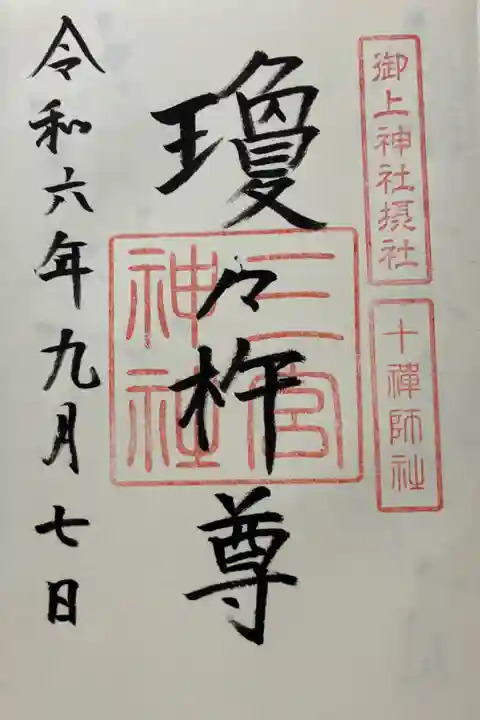 御上神社摂社
十禅師社
瓊々杵尊
三宮
神社
令和六年九月七日